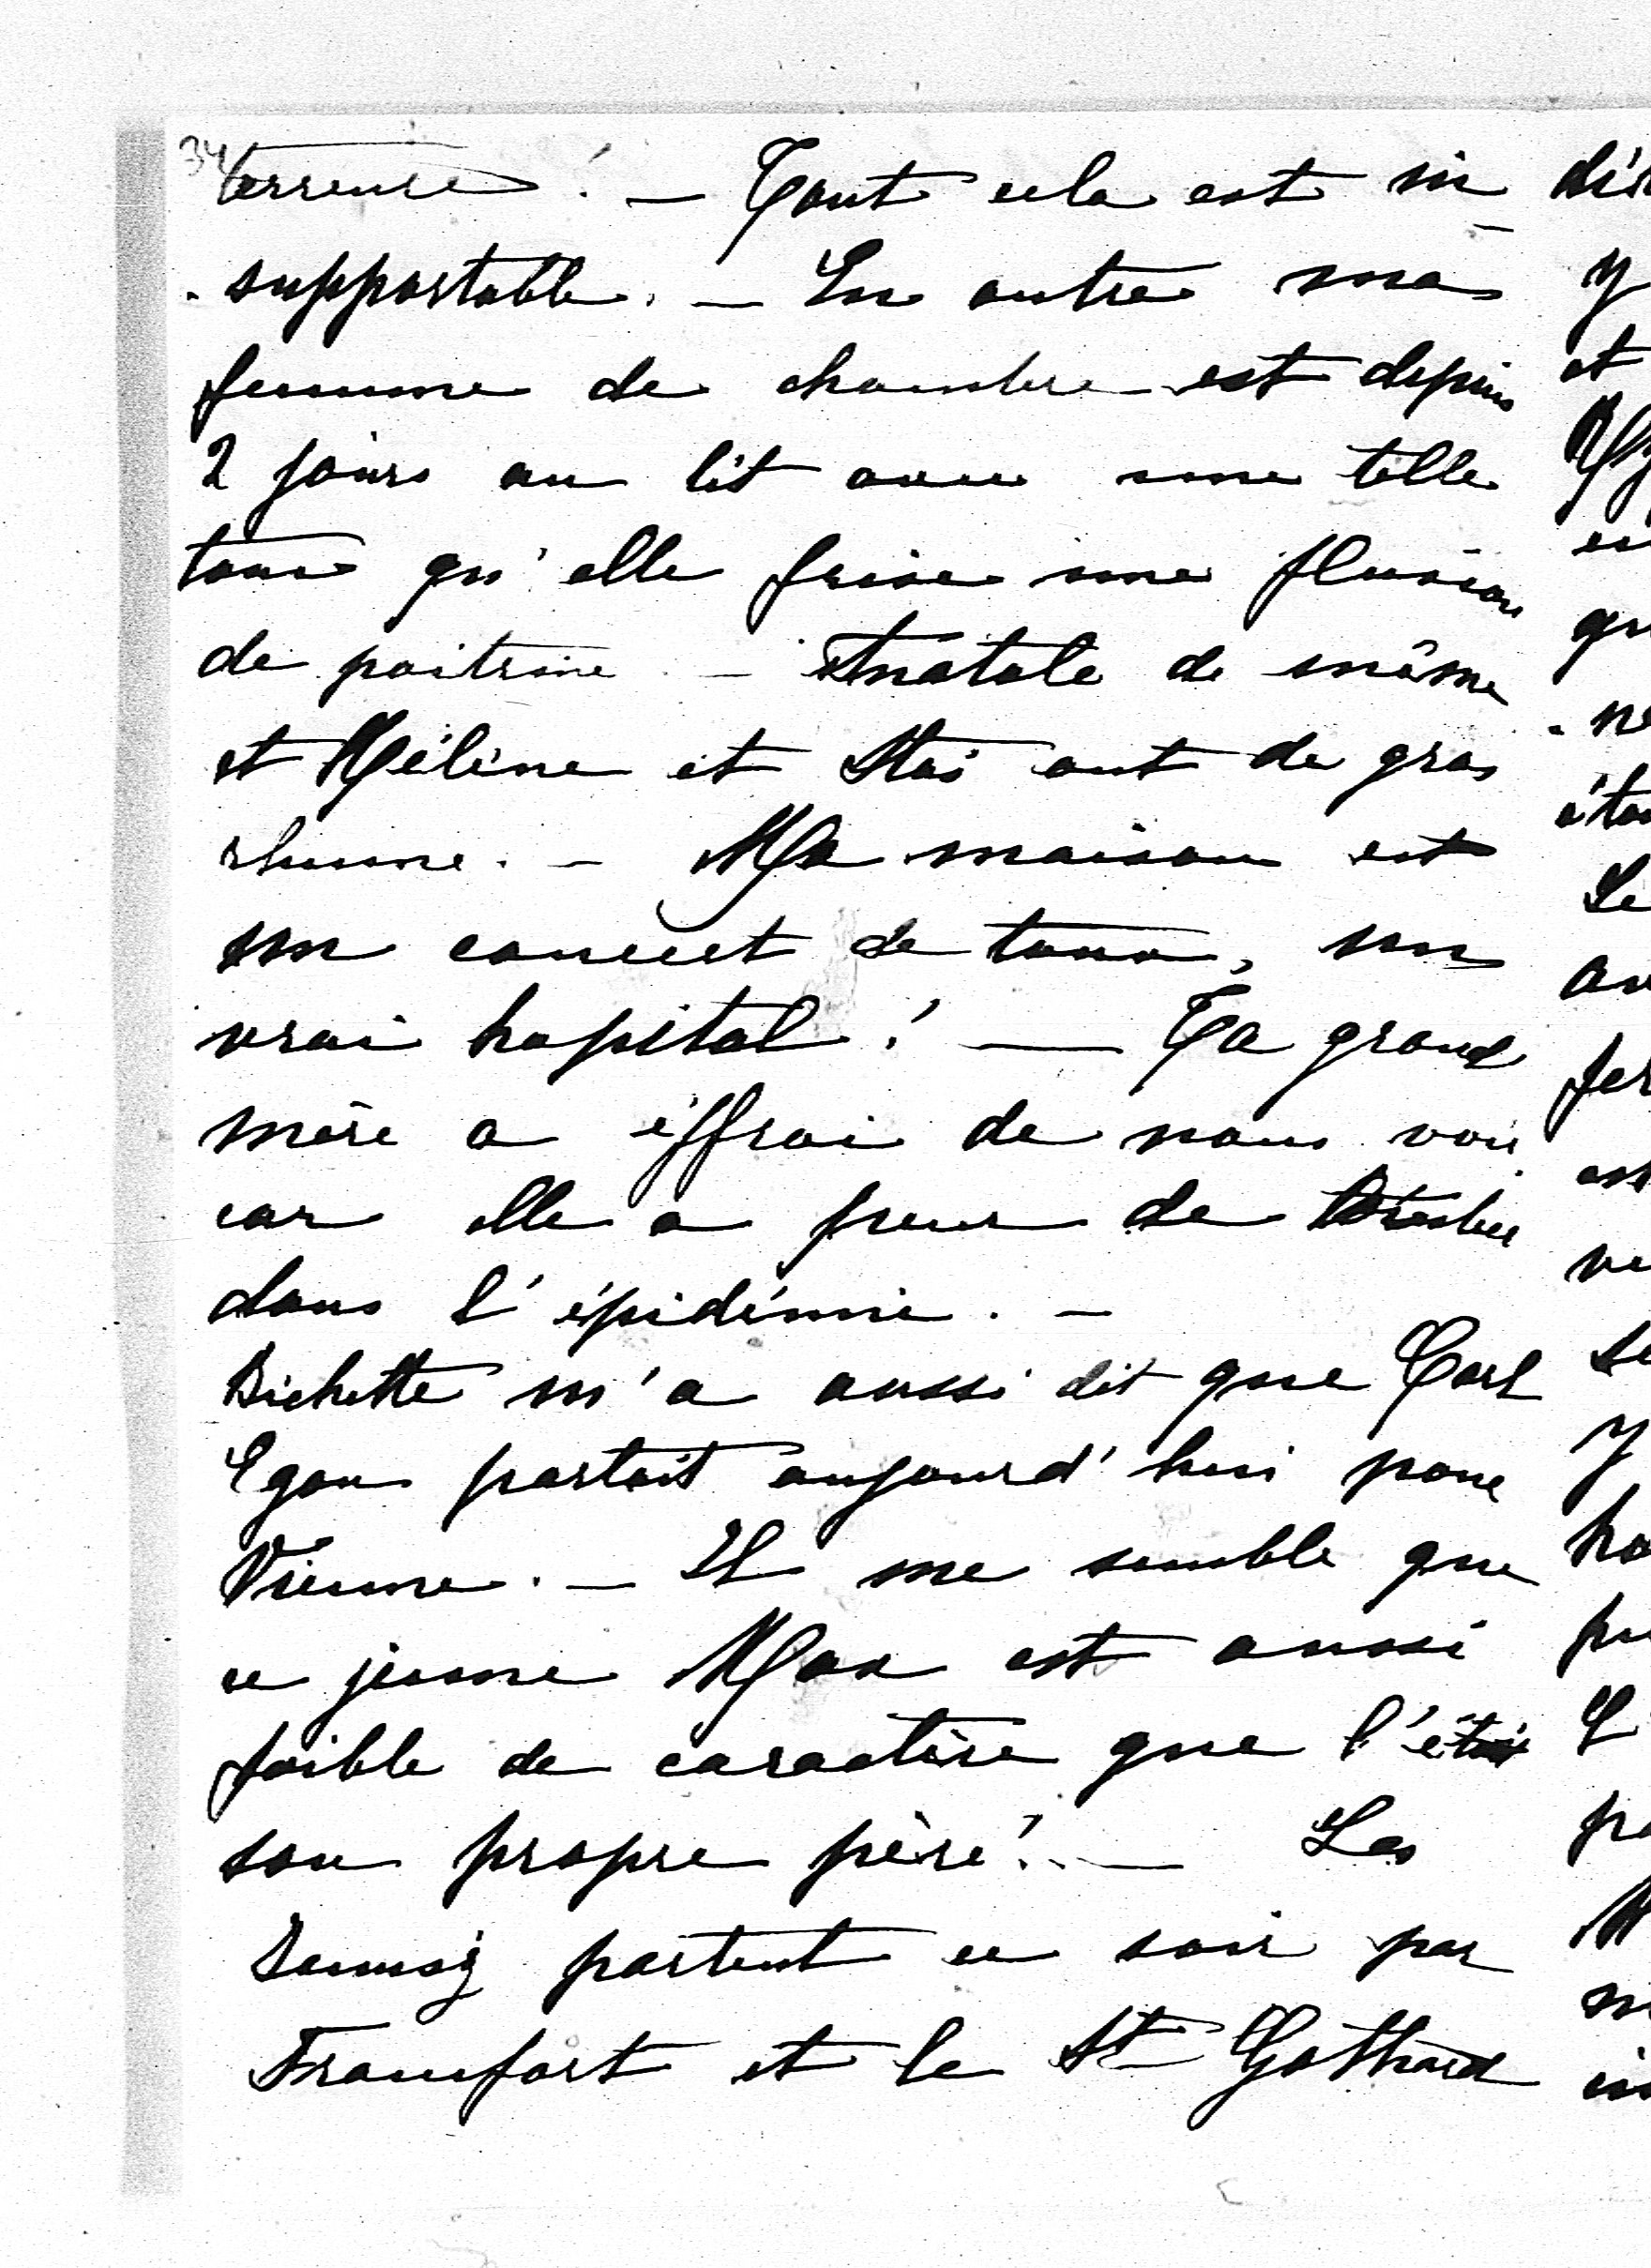 34
terreuse! — Tout cela est in
-supportable. — En outre ma
femme de chambre est depuis
2 jours au lit avec une telle
toux qu'elle frise une fluxion
de poitrine. — Anatole de même
et Méline et Stas ont de gros
rhume. — Ma maison est
un concert de toux, un
vrai hopital! — Ta grand
mère a éffroi de nous voir
car elle a peur de tomber
dans l'épidémie. —
Bichette m'a aussi dit que Carl
Egon partait aujourd'hui pour
Vienne. — Il me semble que
ce jeune Max est aussi
faible de caractère que l'était
son propre père! — Les
partent ce soir par
Francfort et le St Gothard